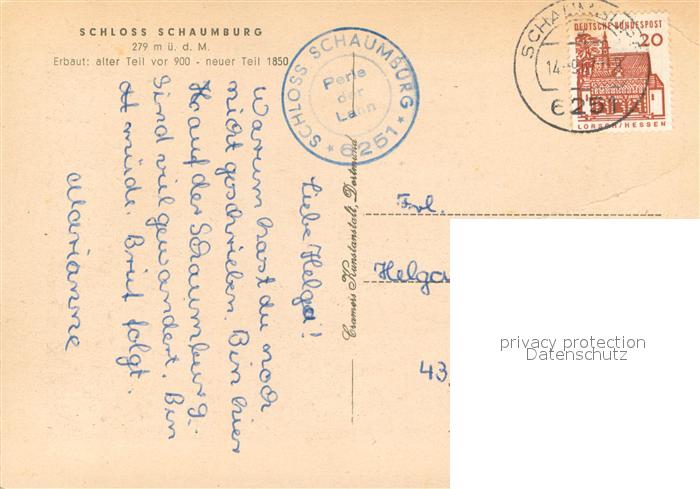 SCHLOSS SCHAUMBURG
279 m ü. d. M.
Erbaut: alter Teil vor 900 - neuer Teil 1850
SCHLOSS SCHAUMBURG
Perle
der
Lahn
* 6251 *
DEUTSCHE BUNDESPOST
20
LORSCH/HESSEN
6251
Liebe Helga!
Warum hast du noch
nicht geschrieben. Bin hier
auf der Schaumburg.
Sind viel gewandert. Bin
müde. Brief folgt.
Marianne
Cramers Kunstanstalt, Dortmund
Frl.
Helga
43
privacy protection
Datenschutz